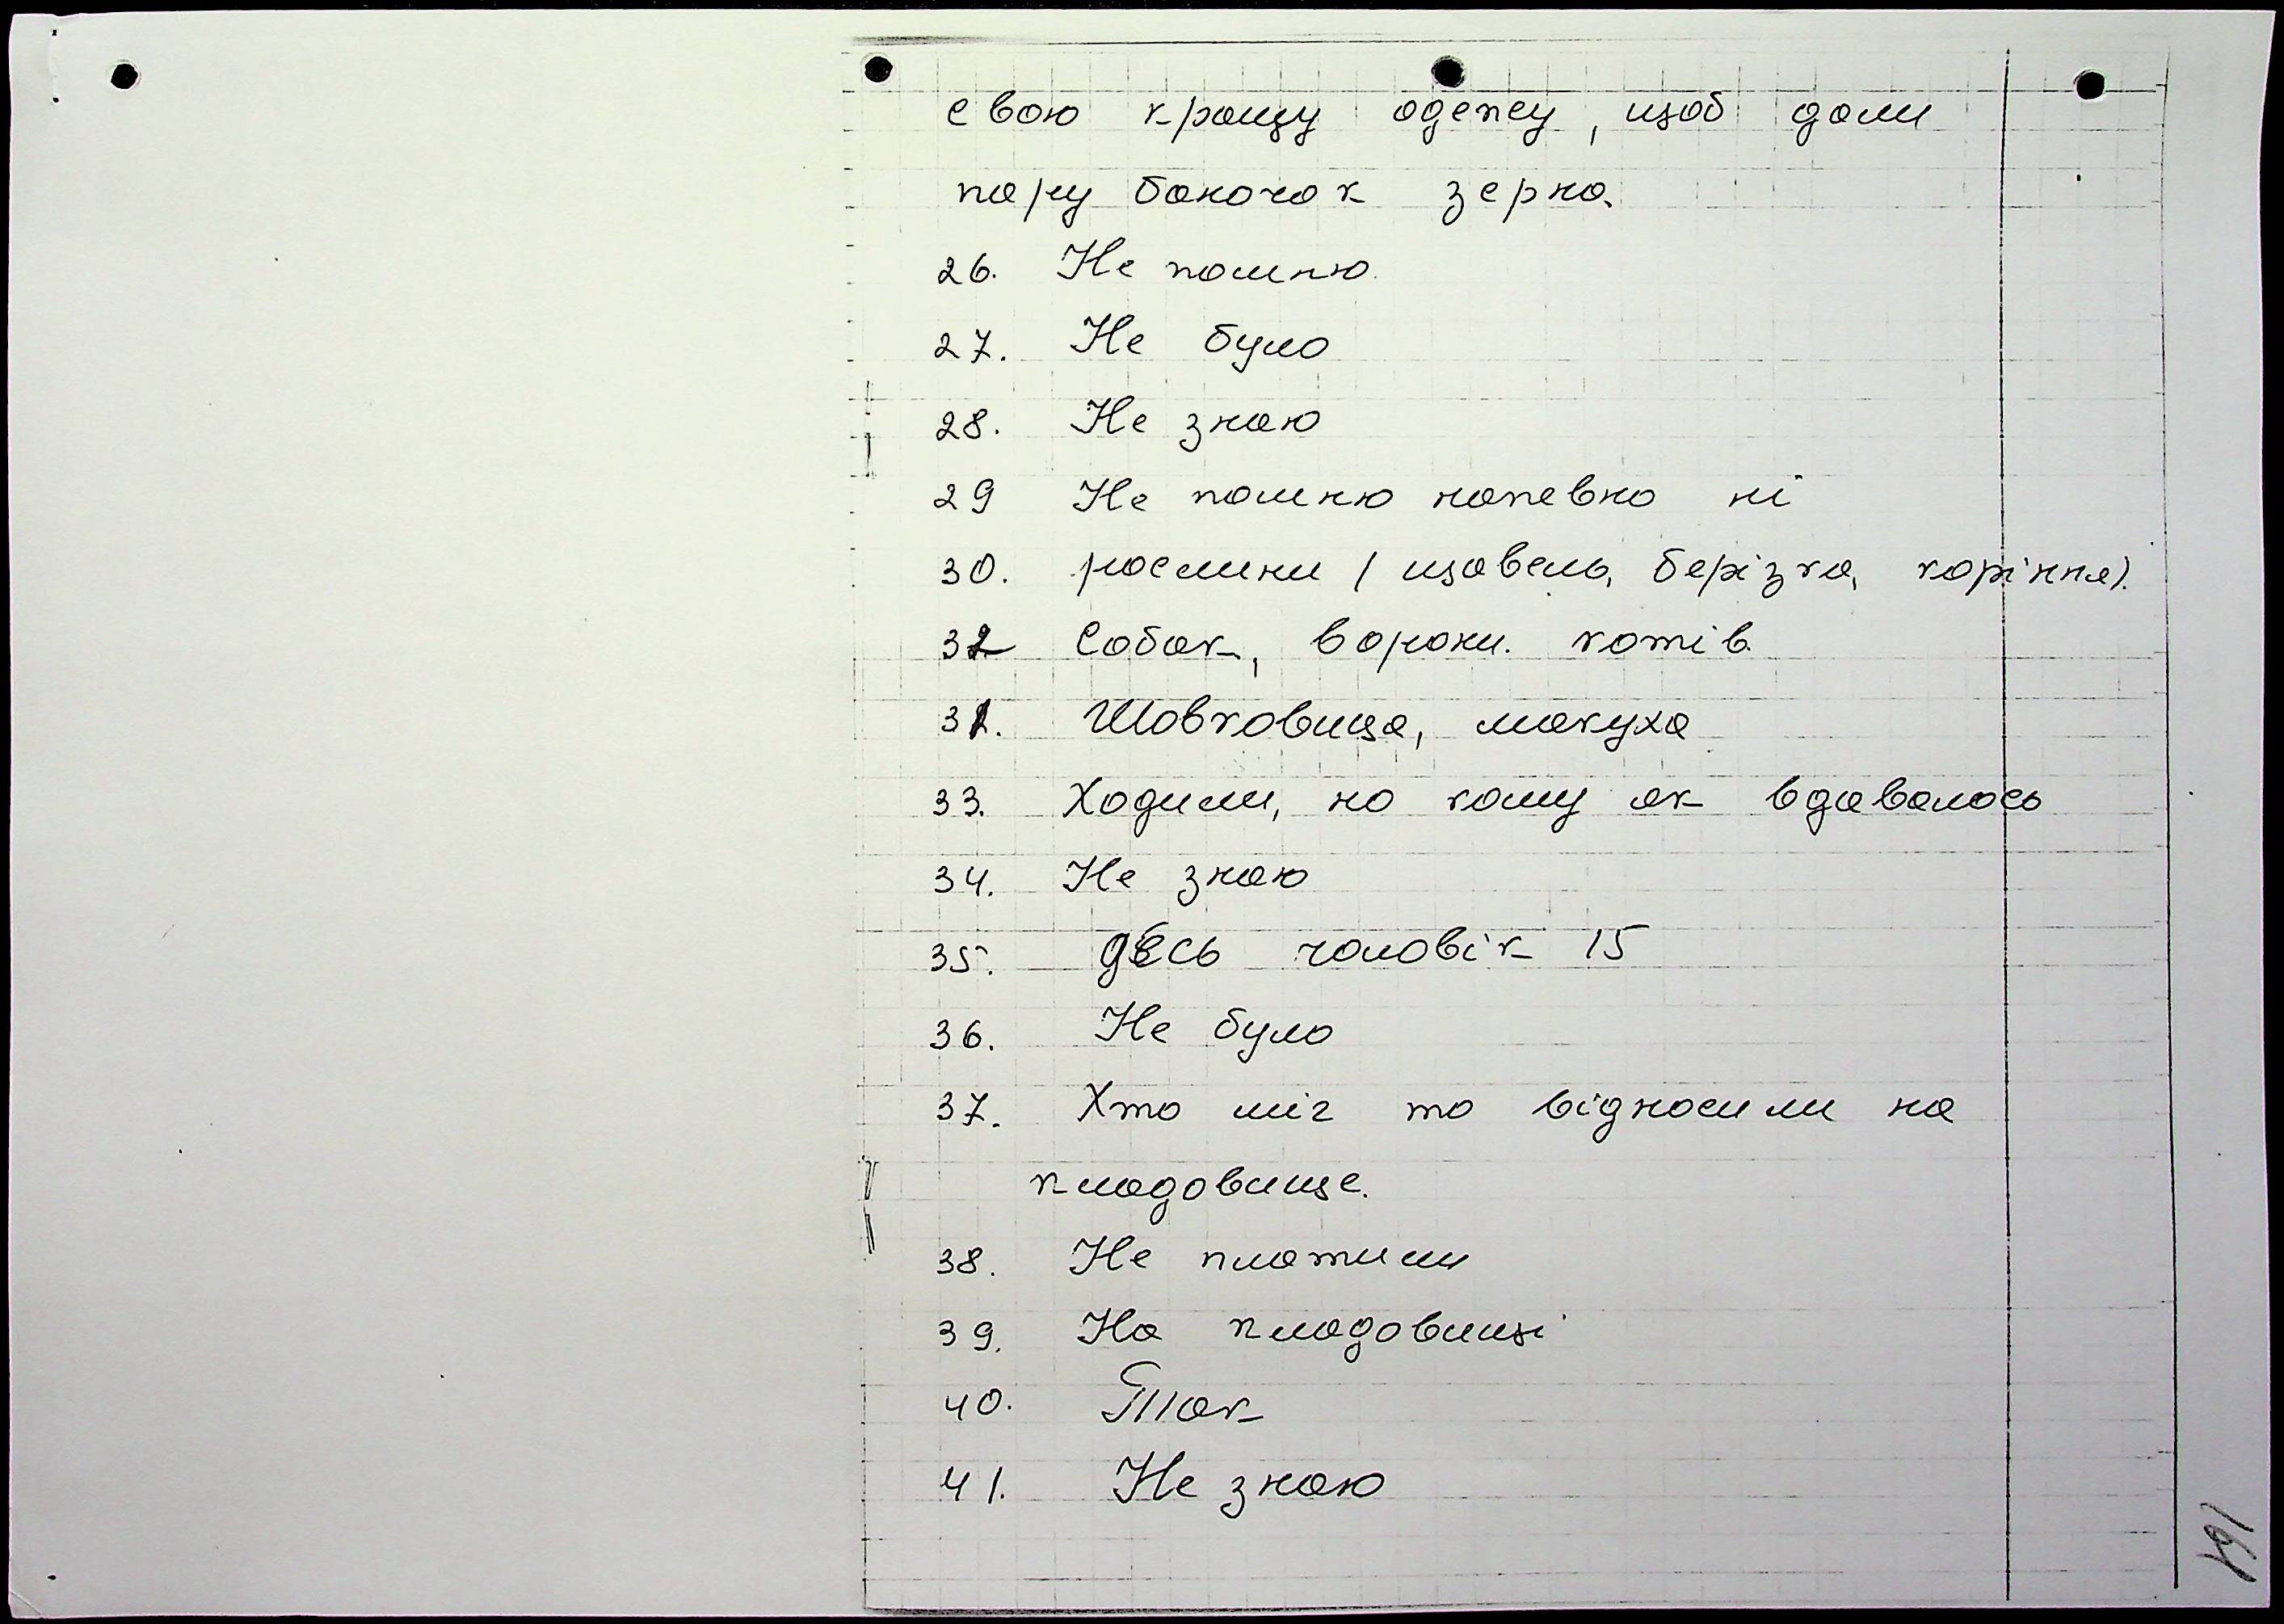 свою кращу одежу, щоб дали
пару баночок зерна.
26. Не помню.
27. Не було
28. Не знаю
29 Не помню напевно ні
30. рослини (щавель, берізка, коріння).
32 Собак, ворони. котів.
31. Шовковица, макуха
33. Ходили, но кому як вдавалось
34. Не знаю
35. десь чоловік 15
36. Не було
37. Хто міг то відносили на
кладовище.
38. Не платили
39. На кладовищі
40. Так
41. Не знаю